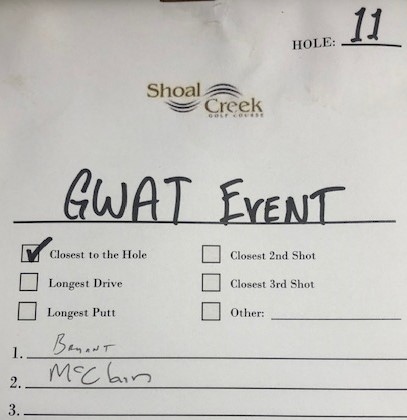 HOLE: 11
Shoal
Creek
GOLF COURSE
GWAT EVENT
Closest to the Hole
Closest 2nd Shot
Longest Drive
Closest 3rd Shot
Longest Putt
Other:
1. Bryant
2. McClain
3.